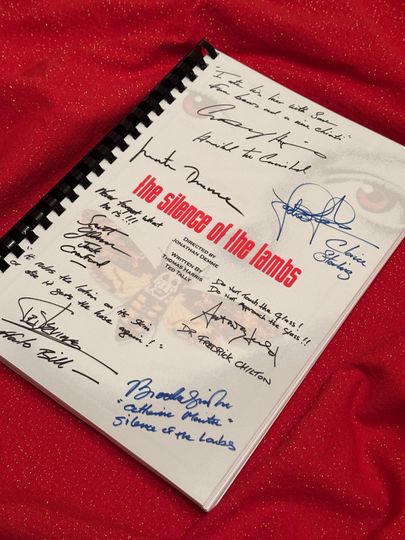 "I ate his liver with some
fava beans and a nice chianti"
Anthony Hopkins
Hannibal the Cannibal
Jonathan Demme
the silence of the lambs
Jodie Foster
Clarice
Starling
DIRECTED BY
JONATHAN DEMME
WRITTEN BY
THOMAS HARRIS
TED TALLY
Never forget what
he is!!!
Scott Glenn
Jack
Crawford
"it rubs the lotion on its skin
or else it gets the hose again!"
Buffalo Bill
Do not touch the glass!
Do not approach the glass!!
DR. FREDRICK CHILTON
Brooke Smith
"Catherine Martin"
Silence of the Lambs